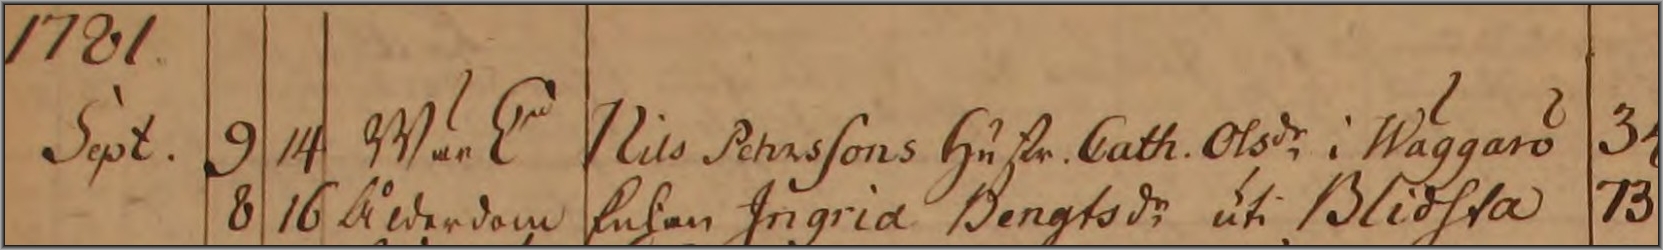 1781.
Sept. 9 14 Nils Pehrssons Hustr. Cath. Olsdr i Waggarö
8 16 Ålderdom Enkan Ingrid Bengtsdr uti Blidsta 73